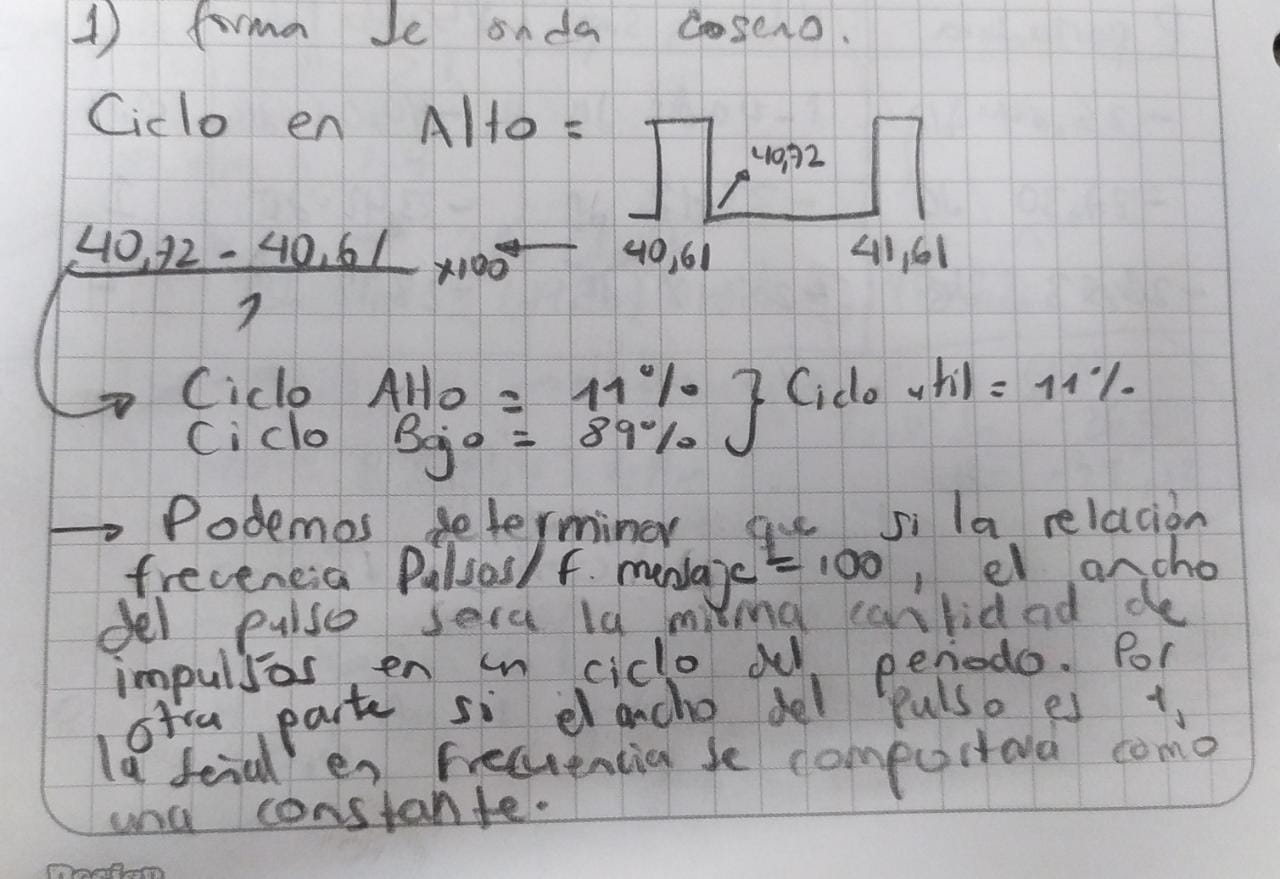 1) forma de onda coseno.
Ciclo en Alto =
40,72
40,72 - 40,61 x100 40,61 41,61
1
Ciclo Alto = 11% } Ciclo util = 11%
Ciclo Bajo = 89%
→ Podemos determinar que si la relación
frecuencia Pulsos/f. mensaje = 100, el ancho
del pulso sera la misma cantidad de
impulsos en un ciclo del periodo. Por
otra parte si el ancho del pulso es 1,
la señal en frecuencia se comportara como
una constante.